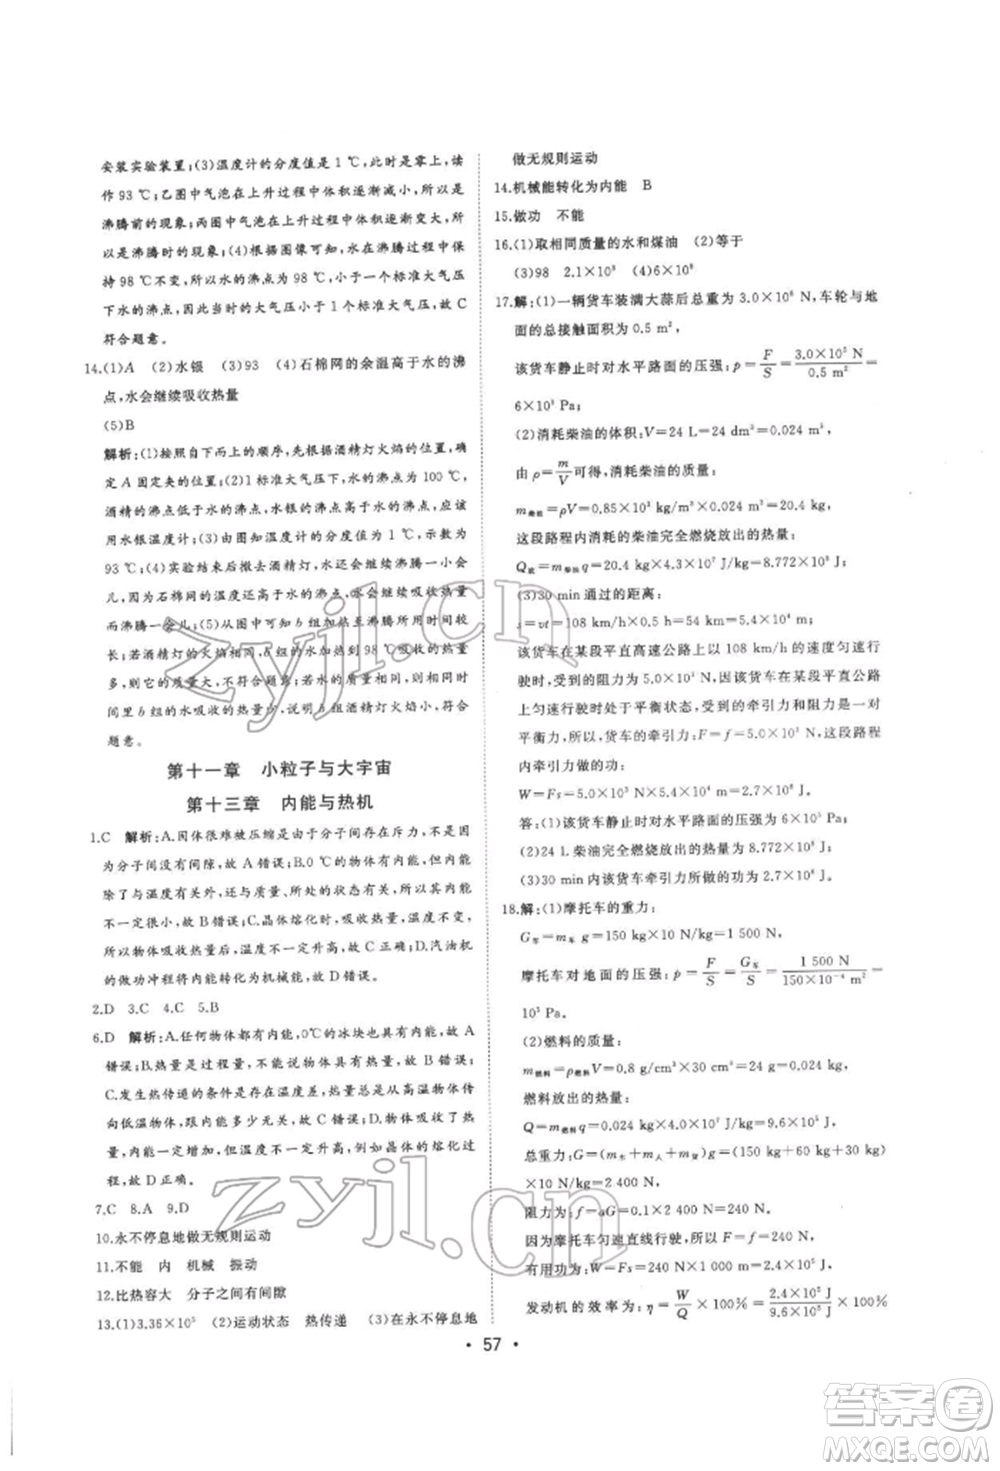 安装实验装置;(3)温度计的分度值是 1 ℃,此时是零上,读
作 93 ℃;乙图中气泡在上升过程中体积逐渐减小,所以是
沸腾前的现象;丙图中气泡在上升过程中体积逐渐变大,所
以是沸腾时的现象;(4)根据图像可知,水在沸腾过程中保
持 98 ℃ 不变,所以此时水的沸点为 98 ℃,小于一个标准大气压下
水的沸点,因此当时的大气压小于 1 个标准大气压,故 C
符合题意。
14.(1)A (2)水银 (3)93 (4)石棉网的余温高于水的沸
点,水会继续吸收热量
(5)B
解析:(1)按照自下而上的顺序,首先根据酒精灯火焰的位置,确
定 A 固定夹的位置;(2)1 标准大气压下,水的沸点为 100 ℃,
酒精的沸点低于水的沸点,水银的沸点高于水的沸点,所以
应用水银温度计;(3)由图知温度计的分度值为 1 ℃,示数为
93 ℃;(4)实验结束撤去酒精灯,水会继续沸腾一会
儿,因为石棉网的温度高于水的沸点,水会继续吸收热量从
而沸腾一会儿;(5)从图中可知 b 组加热至沸腾所用时间较
长;若酒精灯火焰相同,不符合题意;若水的质量相同,相同时
间里 b 组的水吸收的热量少,说明 b 组酒精灯火焰小,符合
题意。
第十一章 小粒子与大宇宙
第十三章 内能与热机
1.C 解析:A.固体很难被压缩是由于分子间存在斥力,不是因
为分子间没有间隙,故 A 错误;B.0 ℃的物体有内能,内能
除了与温度有关外,还与质量、所处的状态有关,所以内能
不一定很小,故 B 错误;C.晶体熔化时,吸收热量,温度不变,
所以物体吸收热量,温度不一定升高,故 C 正确;D.汽油机
的做功冲程将内能转化为机械能,故 D 错误。
2.D 3.C 4.C 5.B
6.D 解析:A.任何物体都有内能,0℃的冰块也有内能,故 A
错误;B.热量是过程量,不能说含有或具有热量,故 B 错误;
C.发生热传递的条件是存在温度差,热量是从高温物体传
向低温物体,与内能多少无关,故 C 错误;D.物体的温度不
变,内能不一定不变,内能增大,温度不一定升高,例如晶体的熔化过
程,故 D 正确。
7.C 8.A 9.D
10.永不停息地做无规则运动
11.不能 内 机械 振动
12.比热容大 分子之间有间隙
13.(1)3.36×10⁵ (2)运动状态 热传递 (3)在永不停息地
做无规则运动
14.机械能转化为内能 B
15.做功 不能
16.(1)取相同质量的水和煤油 (2)等于
(3)98 2.1×10³ (4)6×10⁶
17.解:(1)一辆货车装满大蒜后总重为 3.0×10⁵ N,车轮与地
面的总接触面积为 0.5 m²,
该货车静止时对水平路面的压强:p=F/S=3.0×10⁵ N/0.5 m²=
6×10⁵ Pa;
(2)消耗柴油的体积:V=24 L=24 dm³=0.024 m³,
由 ρ=m/V 可得,消耗柴油的质量:
m柴油=ρV=0.85×10³ kg/m³×0.024 m³=20.4 kg,
这段路程内消耗的柴油完全燃烧放出的热量:
Q放=m柴油q=20.4 kg×4.3×10⁷ J/kg=8.772×10⁸ J;
(3)30 min 通过的距离:
s=vt=108 km/h×0.5 h=54 km=5.4×10⁴ m,
该货车在某段平直高速公路上以 108 km/h 的速度匀速行
驶时,受到的阻力为 5.0×10³ N,该货车在某段平直公路
上匀速行驶时处于平衡状态,受到的牵引力和阻力是一对
平衡力,所以,货车的牵引力:F=f=5.0×10³ N,这段路程
内牵引力做的功:
W=Fs=5.0×10³ N×5.4×10⁴ m=2.7×10⁸ J。
答:(1)该货车静止时对水平路面的压强为 6×10⁵ Pa;
(2)24 L 柴油完全燃烧放出的热量为 8.772×10⁸ J;
(3)30 min 该货车牵引力所做的功为 2.7×10⁸ J。
18.解:(1)摩托车的重力:
G车=m车 g=150 kg×10 N/kg=1 500 N,
摩托车对地面的压强:p=F/S=G车/S=1 500 N/150×10⁻⁴ m²=
10⁵ Pa。
(2)燃料的质量:
m燃料=ρ燃料V=0.8 g/cm³×30 cm³=24 g=0.024 kg,
燃料放出的热量:
Q=m燃料q=0.024 kg×4×10⁷ J/kg=9.6×10⁵ J;
总重力:G=(m车+m人+m货)g=(150 kg+60 kg+
30 kg)×10 N/kg=2 400 N,
阻力为:f=aG=0.1×2 400 N=240 N。
因为摩托车匀速直线行驶,所以 F=f=240 N,
有用功为:W=Fs=240 N×1 000 m=2.4×10⁵ J,
发动机的效率为:η=W/Q×100%=2.4×10⁵ J/9.6×10⁵ J×100%
• 57 •
zyjl.cn
zyjl.cn
答案圈
MXQE.COM